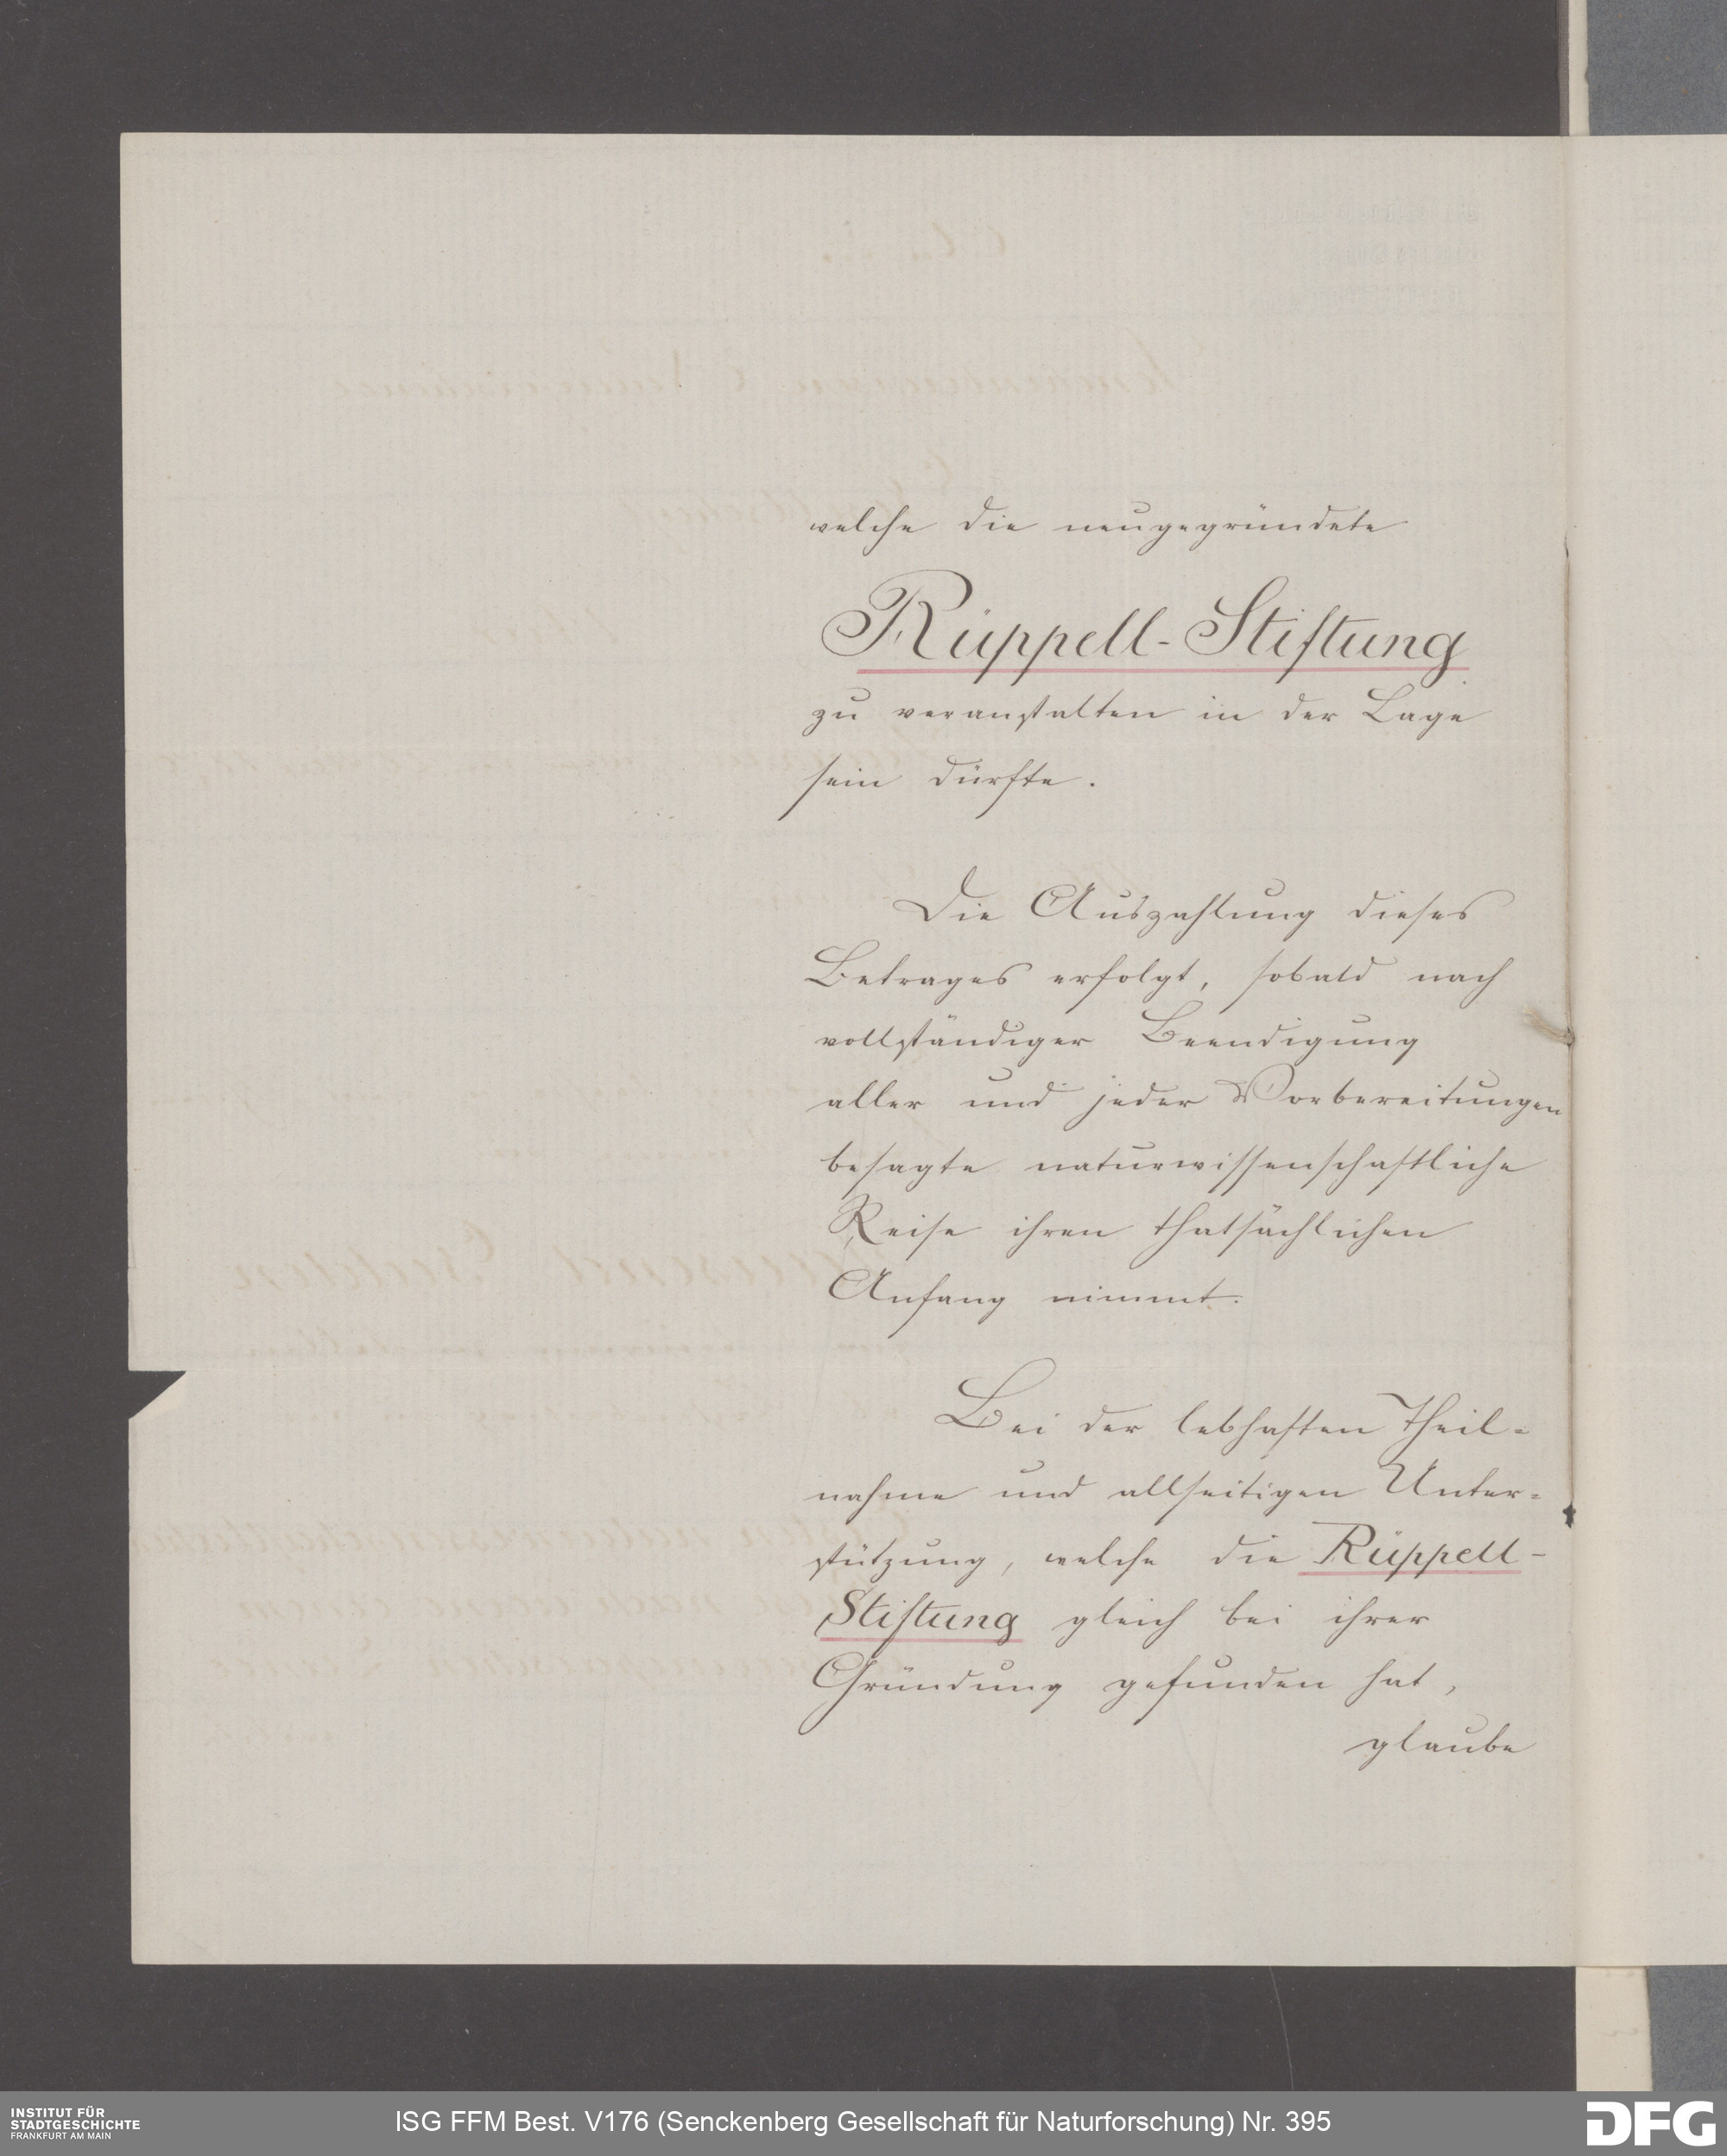 welche die neugegründete
Rüppell-Stiftung
zu veranstalten in der Lage
sein dürfte.
Die Auszahlung dieses
Betrages erfolgt, sobald nach
vollständiger Beendigung
aller und jeder Vorbereitungen
besagte naturwissenschaftliche
Reise ihren thatsächlichen
Anfang nimmt.
Bei der lebhaften Theil=
nahme und allseitigen Unter=
stützung, welche die Rüppell-
Stiftung gleich bei ihrer
Gründung gefunden hat,
glaube
INSTITUT FÜR
STADTGESCHICHTE
FRANKFURT AM MAIN
ISG FFM Best. V176 (Senckenberg Gesellschaft für Naturforschung) Nr. 395
DFG